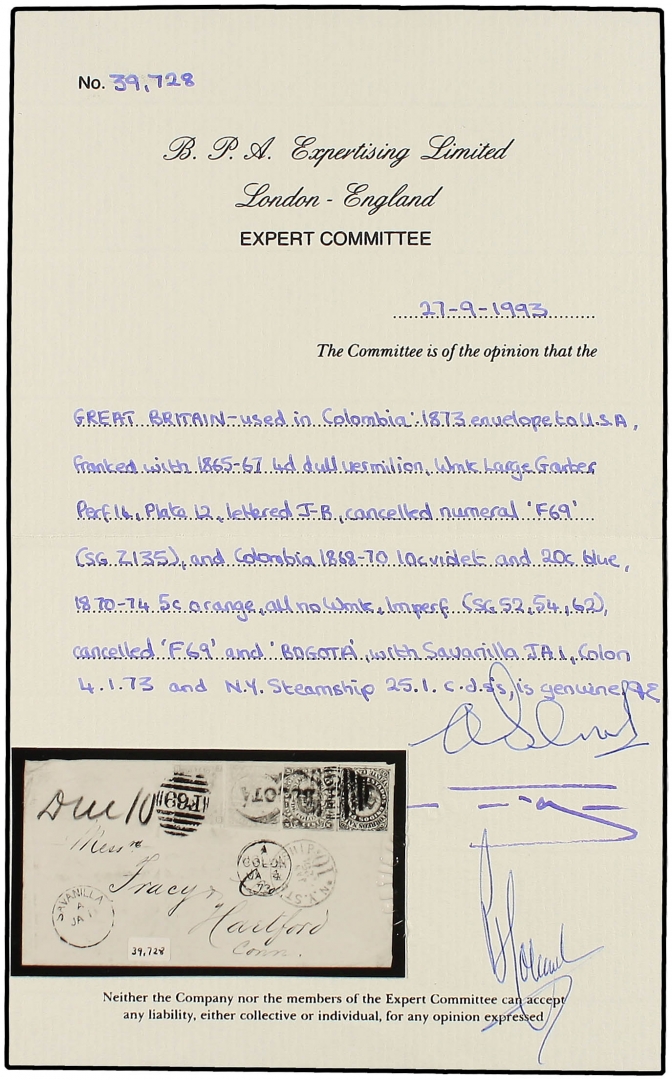 No. 39,728
B. P. A. Expertising Limited
London - England
EXPERT COMMITTEE
27-9-1993
The Committee is of the opinion that the
GREAT BRITAIN-used in Colombia: 1873 envelope to U.S.A,
franked with 1865-67 4d dull vermilion, Wmk Large Garter
Perf 14, Plate 12, lettered J-B, cancelled numeral 'F69'
(SG Z135), and Colombia 1868-70 10c violet and 20c blue,
1870-74 5c orange, all no Wmk, Imperf (SG 52, 54, 62),
cancelled 'F69' and 'BOGOTA', with Savanilla JA 1, Colon
4.1.73 and N.Y. Steamship 25.1. c.d.s's, is genuine
Due 10
F69
Messrs
COLON
JA 4
73
N.Y. ST
Tracy
SAVANILLA
A
JA 1
Hartford
Conn.
39,728
Neither the Company nor the members of the Expert Committee can accept
any liability, either collective or individual, for any opinion expressed